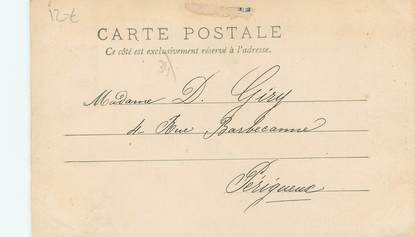 12€
CARTE POSTALE
Ce côté est exclusivement réservé à l'adresse.
Madame D. Giry
4 Rue Barbecanne
Périgueux